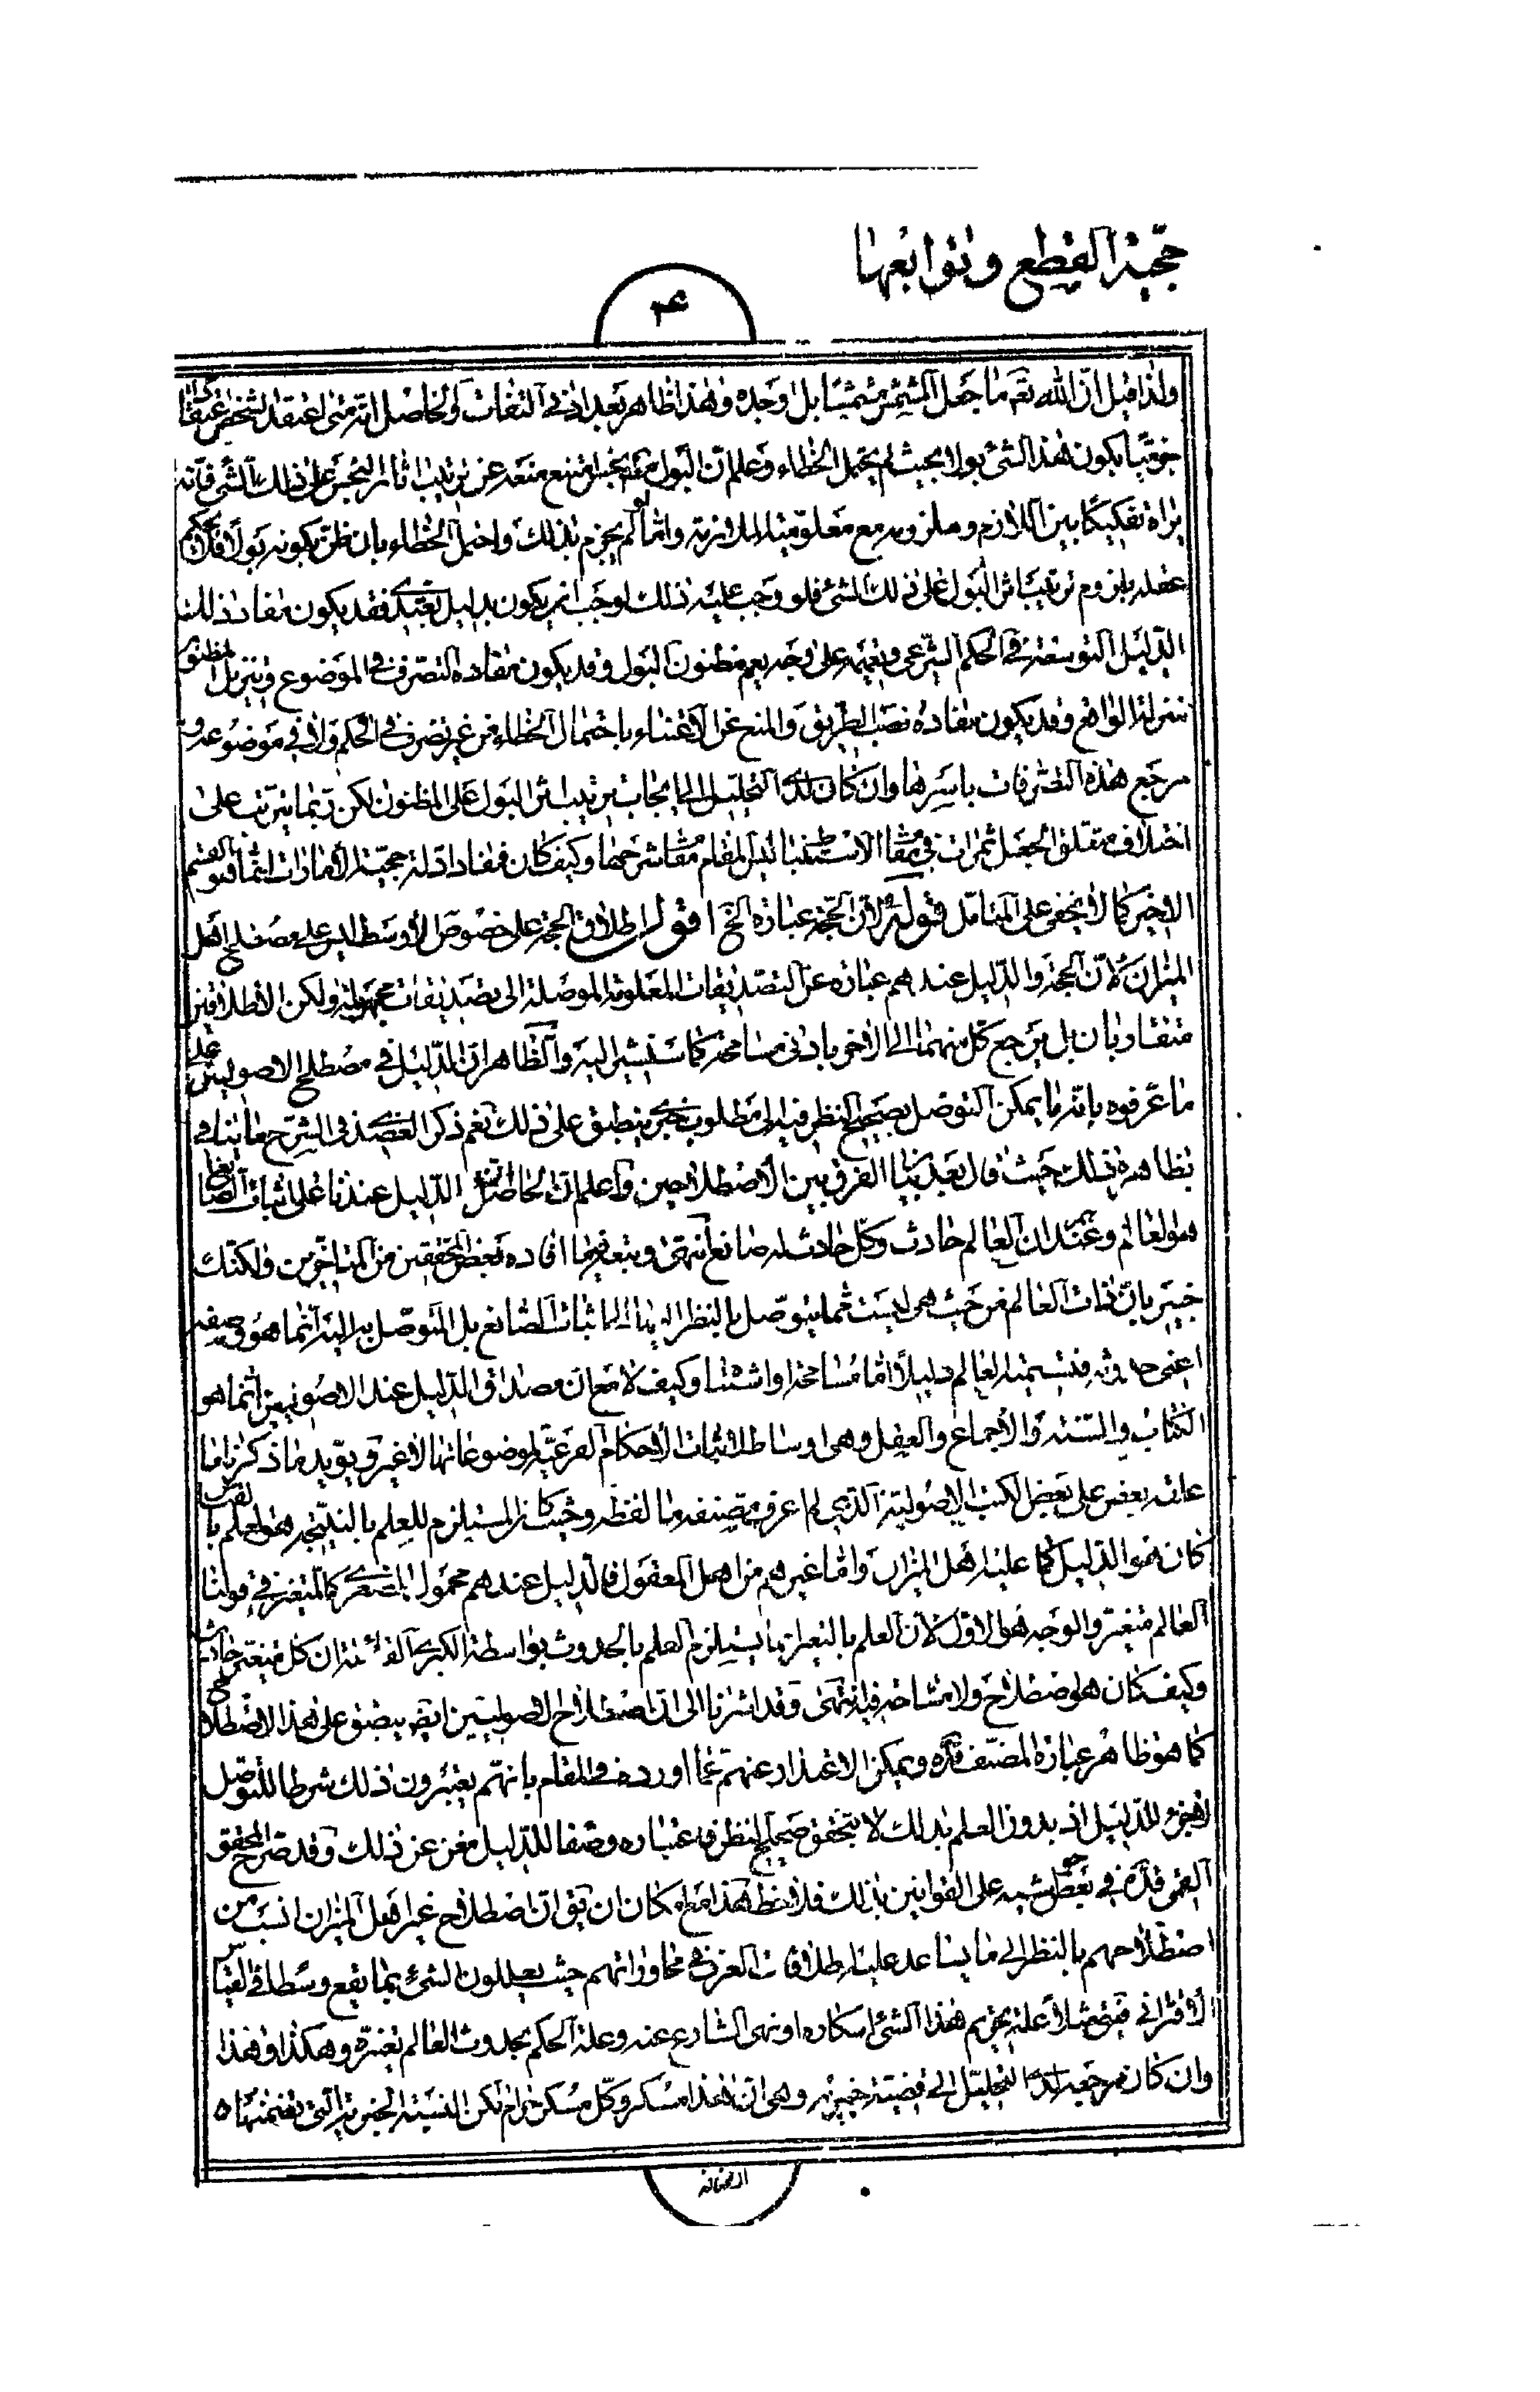 حجّية القطع وتوابعها
ولذا قيل انّ الله تعٓ ما جعل المشمش مشمشا بل اوجده وهذا ظاهر بعد ادنى التفات والحاصل انّه متى اعتقد الشخص اعتقادا
جزميّا بكون هذا الشئ بولا بحيث لم يحتمل الخطاء وعلم انّ البول نجس امتنع منعه عن ترتيب اثار النجس على ذلك الشئ فانّه
يراه تفكيكا بين اللازم وملزومه مع معلوميّة الملازمة وامّا لو لم يجزم بذلك واحتمل الخطاء بان ظنّ بكونه بولا فلا يحكم
عقله بلزوم ترتيب اثر البول على ذلك الشئ فلو وجب عليه ذلك لوجب ان يكون بدليل تعبّدى فقد يكون مفاد ذلك
الدّليل التوسعة فى الحكم الشرعى وتعميمه على وجه يعم مظنون البول وقد يكون مفاده التصرف فى الموضوع وتنزيل المظنون
منزلة الواقع وقد يكون مفاده نصب الطريق والمنع عن الاعتناء باحتمال الخطاء من غير تصرف فى الحكم ولا فى موضوعه و
مرجع هذه التصرفات باسرها وان كان لدى التحليل الى ايجاب ترتيب اثر البول على المظنون لكن ربّما يترتب على
اختلاف متعلق الجعل ثمرات فى مقام الاستنباط ليس المقام مقام شرحها وكيف كان فمفاد ادلة حجيّة الأمارات انّما هو القسم
الاخير كما لا يخفى على المتامّل قوله قدّه لانّ الحجّة عبارة الخ اقول اطلاق الحجة على خصوص الأوسط ليس على مصطلح اهل
الميزان لانّ الحجة والدّليل عندهم عبارة عن التصديقات المعلومة الموصلة الى تصديقات مجهولة ولكن الاطلاقين
متقاربان بل يرجع كل منهما الى الاخر بادنى مسامحة كما سنشير اليه والظاهر انّ الدّليل فى مصطلح الاصوليين على
ما عرفوه بانّه ما يمكن التوصل بصحيح النظر فيه الى مطلوب خبرى ينطبق على ذلك نعم ذكر العضدى فى الشرح ما ينافى
بظاهره ذلك حيث قال بعد بيان الفرق بين الأصطلاحين واعلم انّ الحاصل انّ الدّليل عندنا على اثبات الصانع
هو العالم وعندهم ان العالم حادث وكلّ حادث له صانع انتهى وتبعه فيما افاده بعض المحققين من المتاخّرين ولكنّك
خبير بانّ ذات العالم من حيث هى ليست ممّا يتوصّل بالنظر اليها الى اثبات الصّانع بل التوصّل به اليه انّما هو فى صفته
اعنى حدوثه فتسمية العالم دليلا امّا مسامحة او اشتباه وكيف لا مع انّ مصداق الدّليل عند الاصوليين انّما هو
الكتاب والسّنة والأجماع والعقل وهى اوساط لاثبات الأحكام الفرعيّة لموضوعاتها لا غير ويؤيد ما ذكرنا ما
علّقه بعض على بعض الكتب الاصولية الذى لم اعرف مصنفه ما لفظه وحيث كان المستلزم للعلم بالنتيجة هو العلم بالقياس
كان هو الدّليل كما عليه اهل الميزان وامّا غيرهم من اهل المعقول فالدليل عندهم محمول الصغرى كالمتغير فى قولنا
العالم متغيّر والوجه هو الاوّل لانّ العلم بالتغير انّما يستلزم العلم بالحدوث بواسطة الكبرى القائلة ان كل متغيّر حادث
وكيف كان هو اصطلاح ولا مشاحة فيه انتهى وقد اشرنا الى انّ اصطلاح الاصوليين ايضا ينطبق على هذا الاصطلاح
كما هو ظاهر عبارة المصنّف قدّه ويمكن الاعتذار عنهم عمّا اورده فى المقام بانهم يعتبرون ذلك شرطا للتوصّل
لا جزء للدّليل اذ بدون العلم بذلك لا يتحقق صحيح النظر فاعتباره وصفا للدّليل مغن عن ذلك وقد صرّح المحقق
القمى قدّه فى بعض حواشيه على القوانين بذلك فلاحظ هذا مع امكان ان يقٓ انّ اصطلاح غير اهل الميزان انسب من
اصطلاحهم بالنظر الى ما يساعد عليه اطلاقات العرف فى محاوراتهم حيث يعللون الشئ بما يقع وسطا فى القياس
الاقترانى فيقٓ مثلا علة تحريم هذا الشئ اسكاره او نهى الشارع عنه وعلة الحكم بحدوث العالم تغيّره وهكذا وهذا
وان كان مرجعه لدى التحليل الى قضيّة خبريّة وهى انّ هذا مسكر وكلّ مسكر حرام لكن النسبة الخبرية التى تضمنها